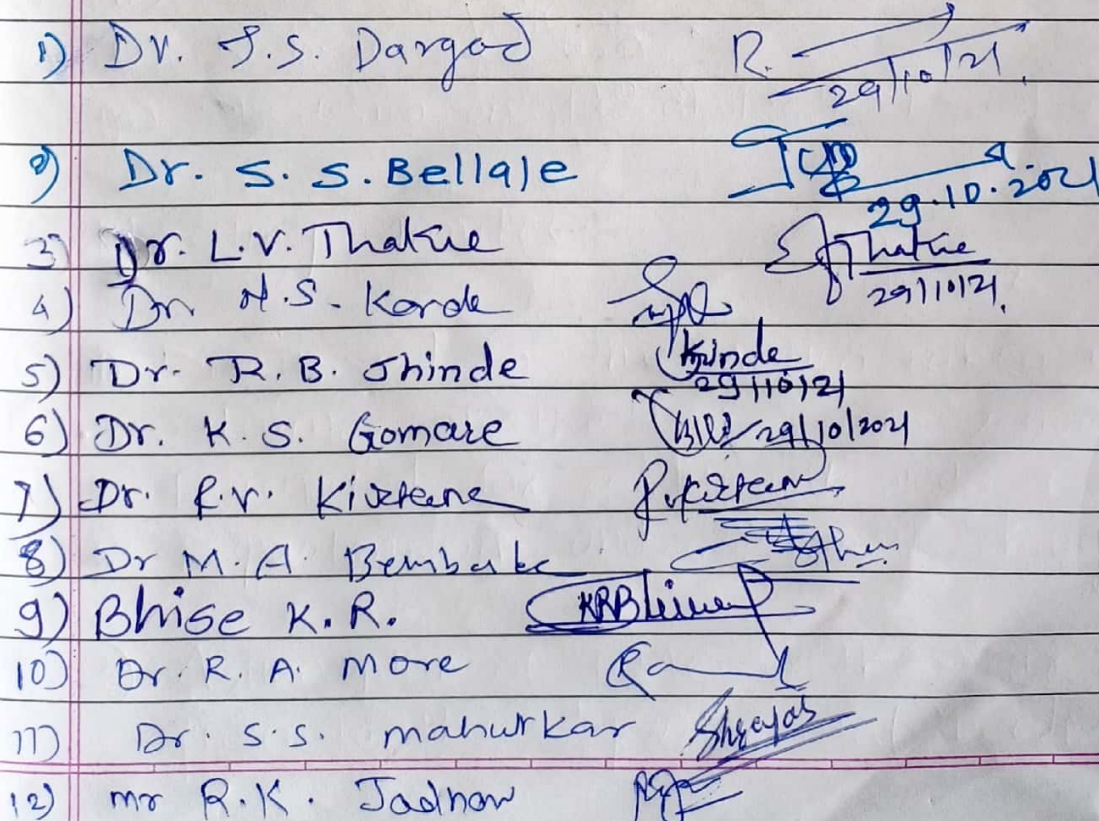 1) Dr. S.S. Dargad R. 29/10/21.
2) Dr. S. S. Bellale 29.10.2021
3) Dr. L.V. Thakre Thakre 29/10/21.
4) Dr. N.S. Korde
5) Dr. R.B. Shinde Shinde 29/10/21
6) Dr. K. S. Gomare 29/10/2021
7) Dr. R.V. Kirteene
8) Dr M. A.
9) Bhise K. R. KRBhise
10) Dr. R. A. More
11) Dr. S.S. mahurkar Shreyas
12) mr R.K. Jadhav